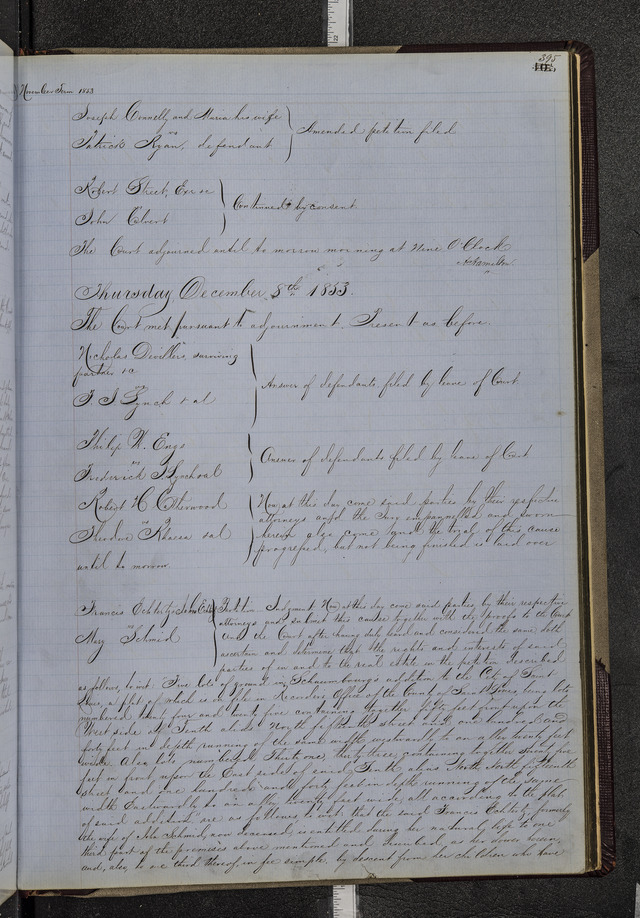 395
November Term 1853
Joseph Connelly and Maria his wife
vs
Patrick Ryan, defendant
Amended petition filed
Robert Street, Exr &c
vs
John Elvert
Continued by consent
The Court adjourned until to morrow morning at Nine O'Clock
A Hamilton
Thursday December 8th 1853.
The Court met pursuant to adjournment. Present as before.
Nicholas Devillers, surviving
partner &c
vs
Lynch & al
Answer of defendants filed by leave of Court
Philip W. Engs
vs
Frederick
Answer of defendants filed by leave of Court
Robert H
vs
until to morrow
Now at this day come said parties by their respective
attorneys and the Jury empannelled and sworn
herein also come and the trial of this cause
progressed, but not being finished is laid over
Francis
vs
Mary Schmid
Petition Judgment Now at this day come said parties, by their respective
attorneys and submit this cause together with the proofs to the Court
And the Court after having duly heard and considered the same, doth
ascertain and determine that the rights and interests of said
parties of in and to the real estate in the petition described
as follows, to wit: Five lots of ground in addition to the City of Saint
Louis, a plat of which is on file in Recorders Office of the County of Saint Louis, being lots
numbered twenty four and twenty five containing together fifty feet front upon the
West side of Tenth street by one hundred and
forty feet in depth running of the same width westwardly to an alley twenty feet
wide. Also lots numbered Thirty one, thirty three, containing together seventy five
feet in front upon the East side of
street and one hundred and forty feet in depth running of the same
width Eastwardly to an alley twenty feet wide, all according to the plat
of said addition, are as follows to wit, that the said Francis formerly
the wife of John Schmid, now deceased, is entitled during her natural life to one
third part of the premises above mentioned and described, as her dower
and also to one third thereof in fee simple, by descent from her children who have